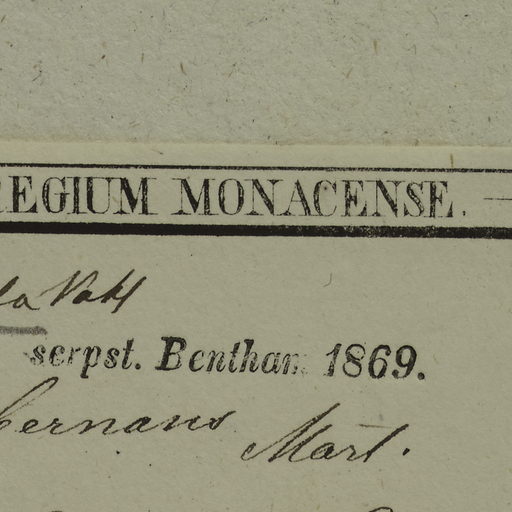 REGIUM MONACENSE.
Vahl
serpst. Bentham 1869.
cernans Mart.